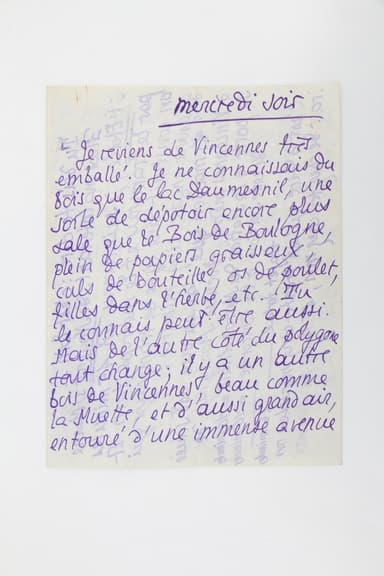 mercredi soir
Je reviens de Vincennes très
emballé. Je ne connaissais du
bois que le lac Daumesnil, une
sorte de dépotoir encore plus
sale que le Bois de Boulogne,
plein de papiers graisseux,
culs de bouteille, os de poulet,
filles dans l'herbe, etc. Tu
le connais peut être aussi.
Mais de l'autre côté du polygone
tout change; il y a un autre
bois de Vincennes, beau comme
la Muette, et d'aussi grand air,
entouré d'une immense avenue